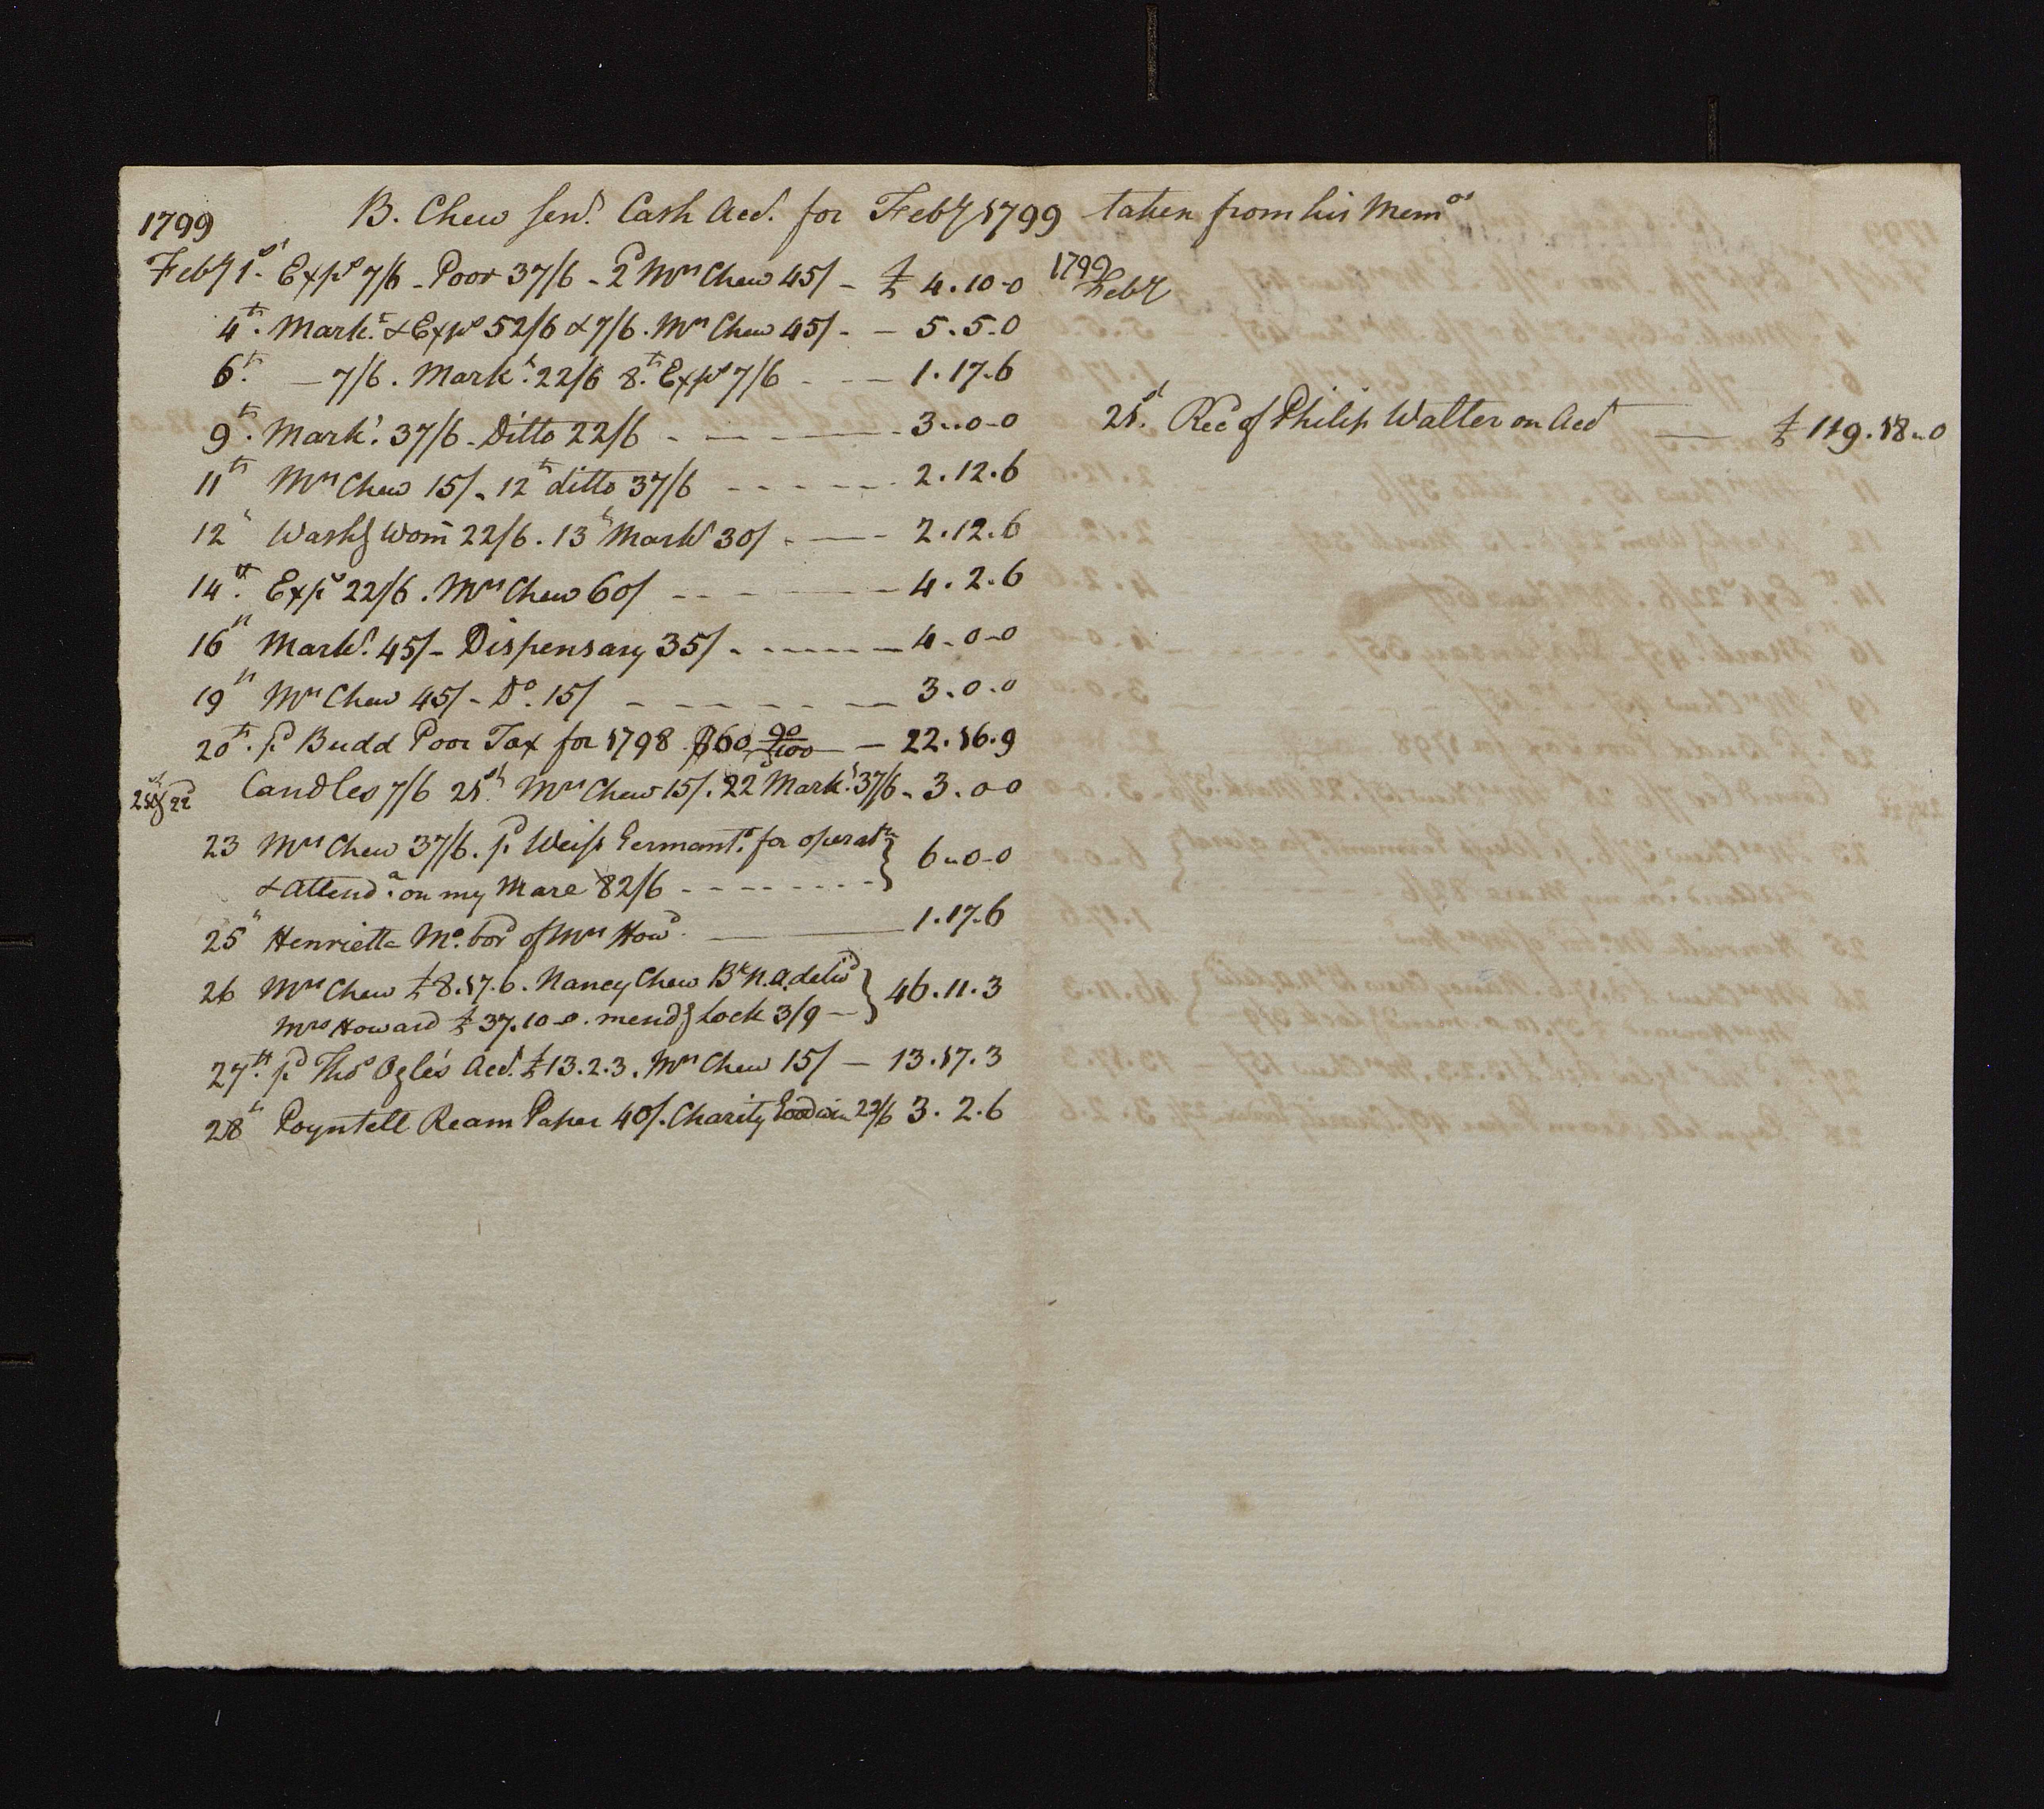 B. Chew senr. Cash Acct. for Feby 1799 taken from his Memos
1799
Feby 1st. Exps 7/6 - Poor 37/6 - pd Mrs Chew 45/ - £ 4.10-0
4th. Markt. & Exps 52/6 & 7/6. Mrs Chew 45/ - - 5.5.0
6th. — 7/6. Markt. 22/6 8th. Exps 7/6 - - - 1.17.6
9th. Markt. 37/6 - Ditto 22/6 - — - — 3..0-0
11th Mrs Chew 15/. 12th ditto 37/6 - - - - - 2.12.6
12th Washg Wom 22/6. 13th Markt 30/. — - 2.12.6
14th. Exps 22/6. Mrs Chew 60/ - - - 4.2.6
16th Markt. 45/- Dispensary 35/. - - - - 4-0-0
19th Mrs Chew 45/- Do. 15/ - - - - - 3.0.0
20th. pd Budd Poor Tax for 1798 $60 90/100 — 22.16.9
21st & 22d Candles 7/6 21st. Mrs Chew 15/. 22 Markt. 37/6 - 3.0 0
23 Mrs Chew 37/6. pd Weiss Germantn. for operatn
& attenda. on my Mare 82/6 - - - - } 6..0-0
25th Henrietta Mo. bord of Mrs Howd. — 1.17.6
26 Mrs Chew £8.17.6. Nancy Chew Bk N.A delivd
Mrs Howard £37.10-0. mendg Lock 3/9 — } 46.11.3
27th. pd Thos Ogle's Acct. £13.2.3. Mrs Chew 15/ — 13.17.3
28th Poyntell Ream Paper 40/. Charity Goodwin 22/6 3.2.6
1799
Feby
21st. Recd of Philip Walter on Acct — £ 119.18..0